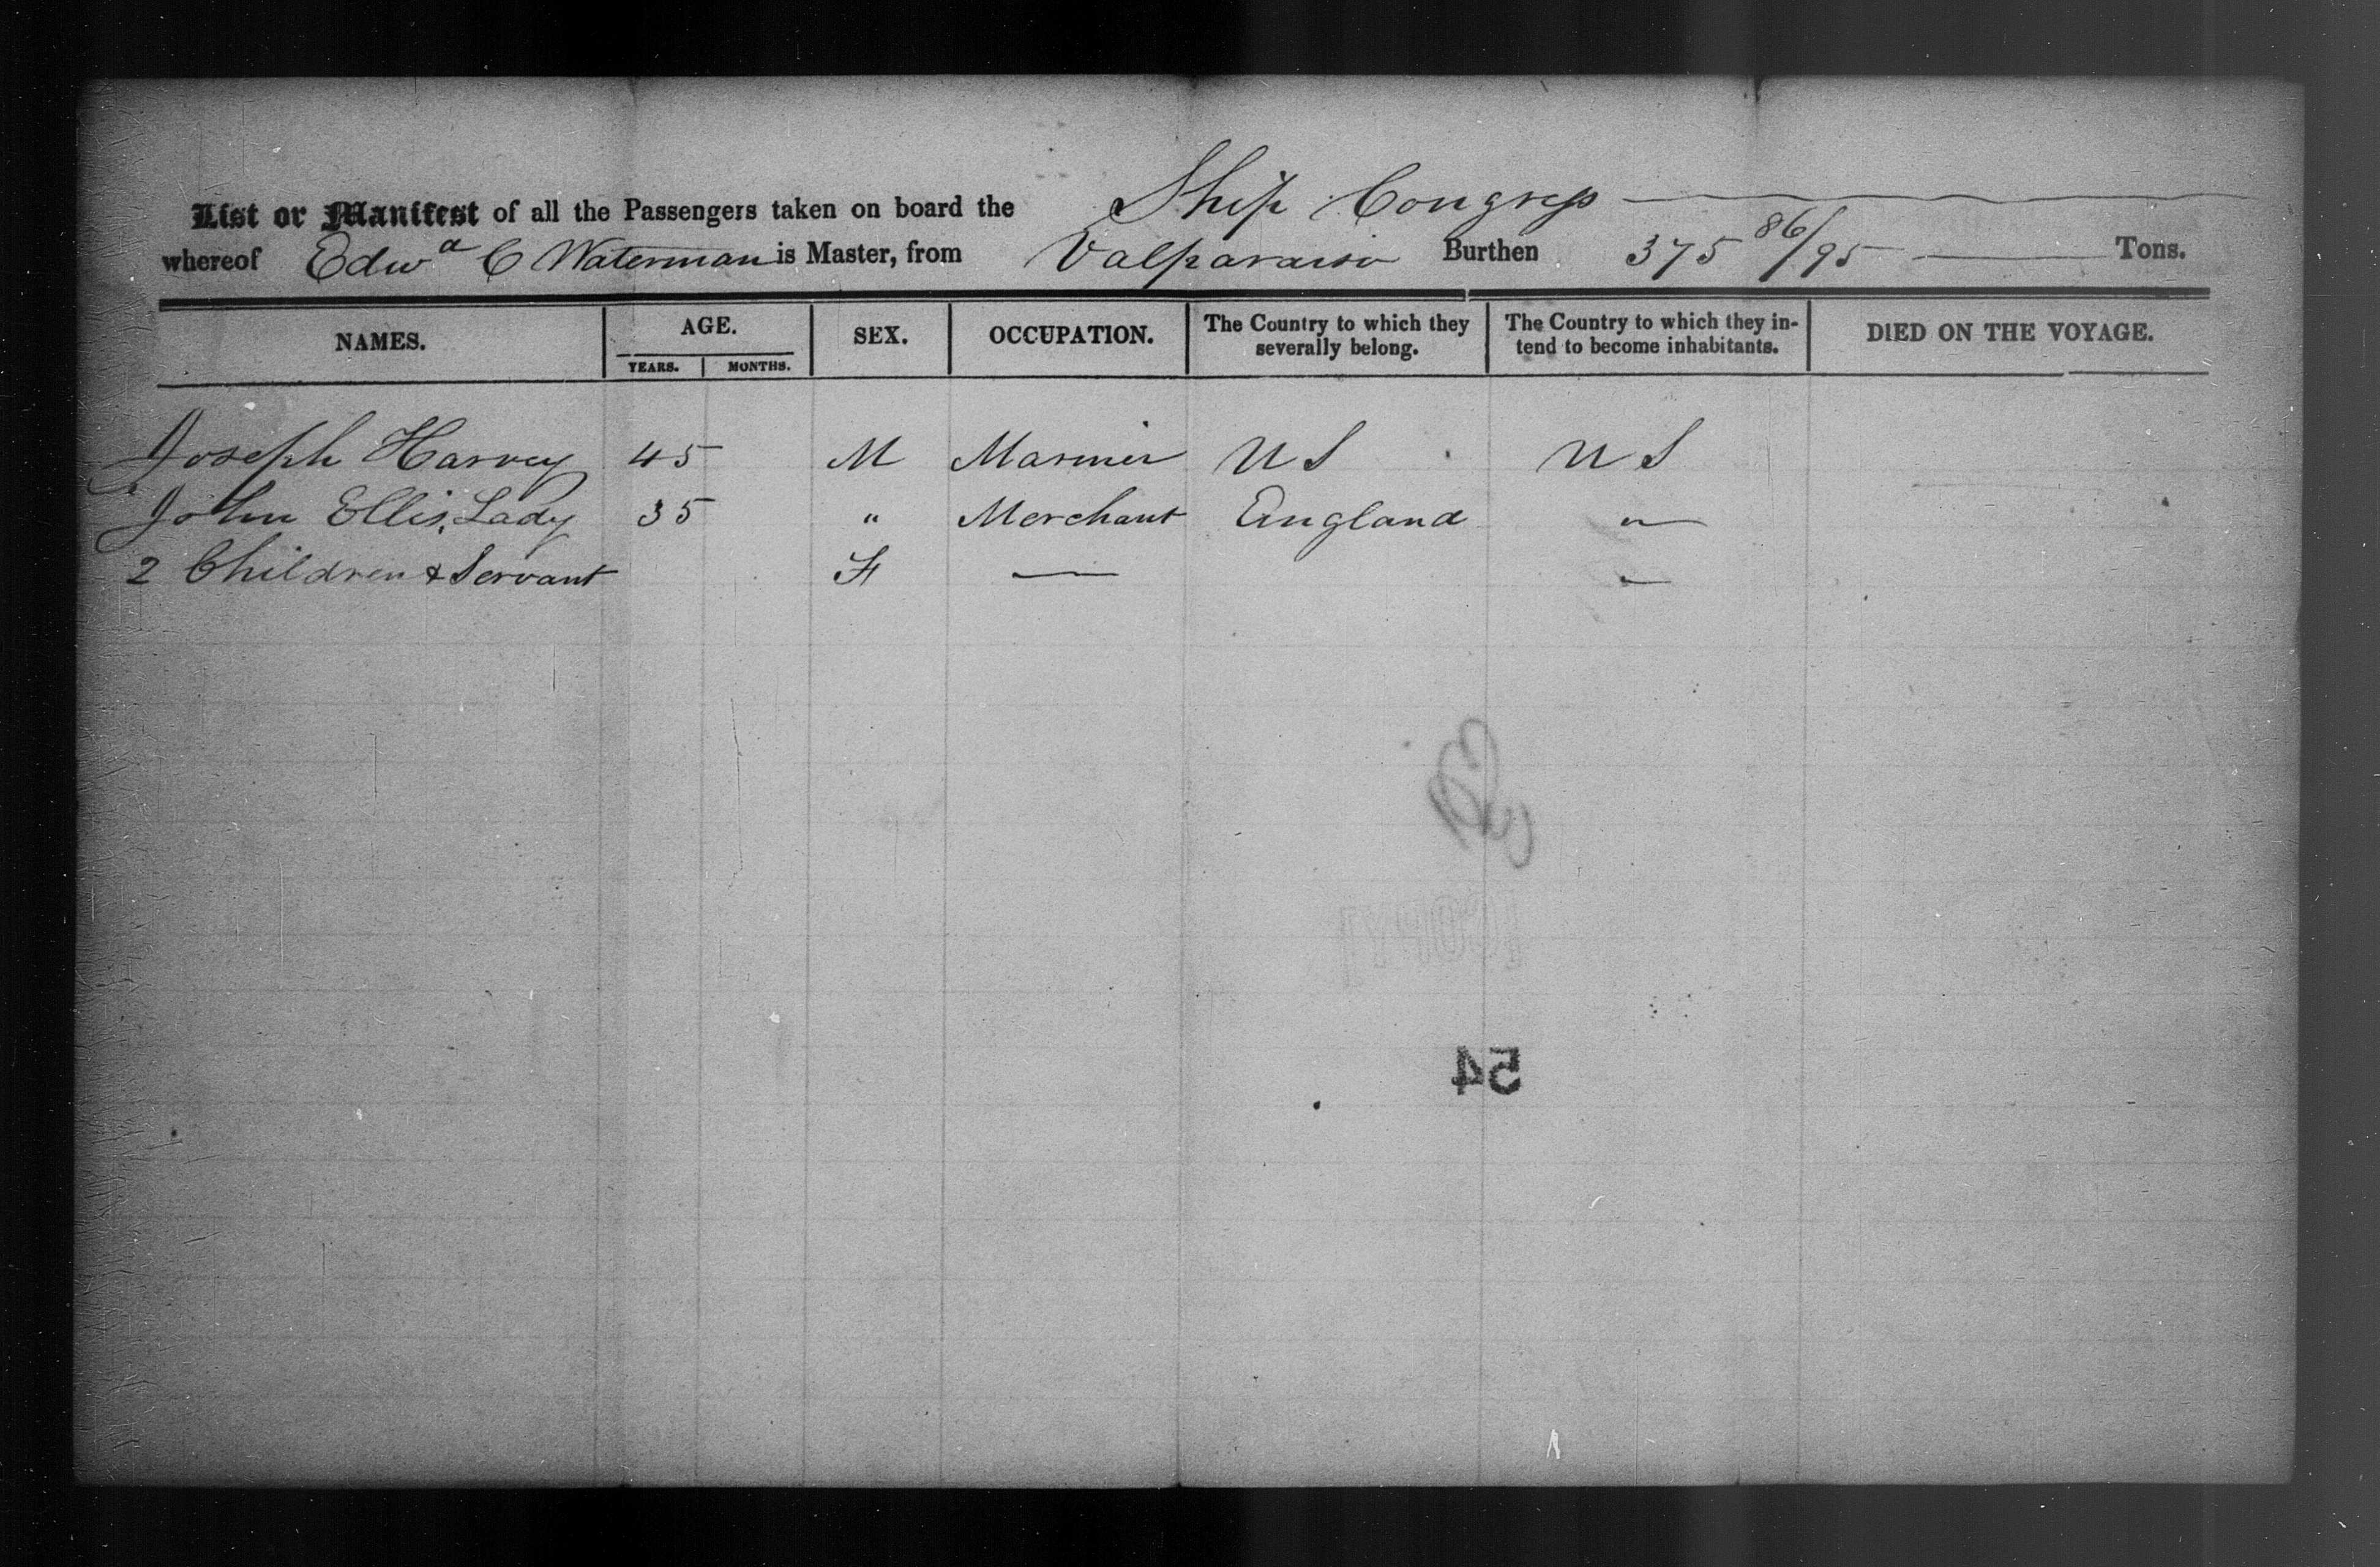 List or Manifest of all the Passengers taken on board the Ship Congress
whereof Edwd C Waterman is Master, from Valparaiso Burthen 375 86/95 Tons.
NAMES. AGE. SEX. OCCUPATION. The Country to which they severally belong. The Country to which they intend to become inhabitants. DIED ON THE VOYAGE.
YEARS. MONTHS.
Joseph Harvey 45 M Mariner U S U S
John Ellis, Lady 35 " Merchant England "
2 Children & Servant F — "
54